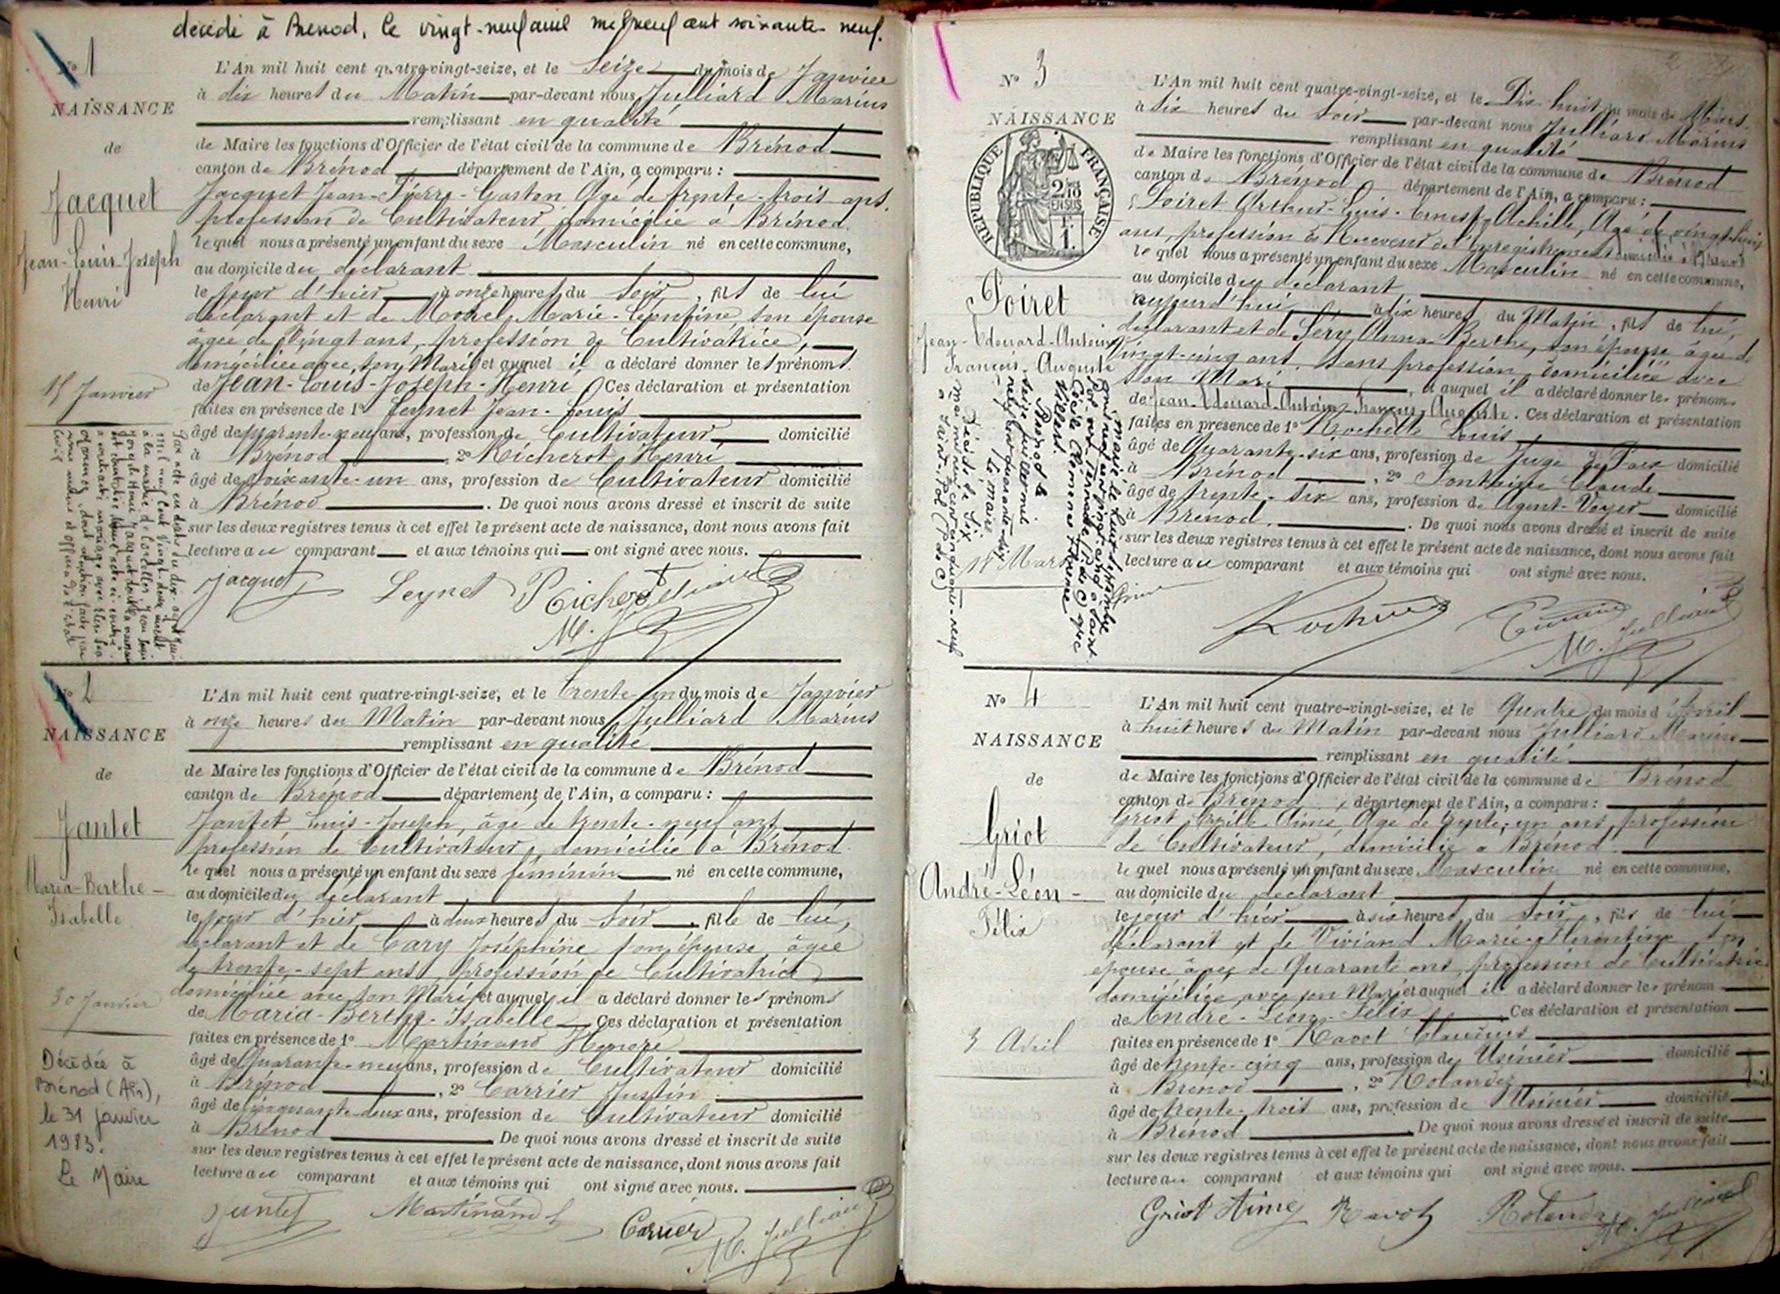 décédé à Brénod, le vingt-neuf avril mil neuf cent soixante-neuf.
No 1
NAISSANCE
de
Jacquet
Jean-Louis-Joseph
Henri
15 Janvier
L'An mil huit cent quatre-vingt-seize, et le Seize du mois de Janvier
à dix heures du Matin par-devant nous Julliard Marius
remplissant en qualité
de Maire les fonctions d'Officier de l'état civil de la commune de Brénod
canton de Brénod département de l'Ain, a comparu :
Jacquet Jean-Pierre-Gaston Agé de trente-trois ans,
profession de Cultivateur, domicilié à Brénod
le quel nous a présenté un enfant du sexe Masculin né en cette commune,
au domicile du déclarant
le jour d'hier à onze heures du Soir, fils de lui
déclarant et de Marie-Léontine son épouse
âgée de Vingt ans, profession de Cultivatrice,
domiciliée avec son Mari et auquel il a déclaré donner les prénoms
de Jean-Louis-Joseph-Henri Ces déclaration et présentation
faites en présence de 1° Leynet Jean-Louis
âgé de quarante-neuf ans, profession de Cultivateur domicilié
à Brénod, 2° Richerot Henri
âgé de soixante-un ans, profession de Cultivateur domicilié
à Brénod. De quoi nous avons dressé et inscrit de suite
sur les deux registres tenus à cet effet le présent acte de naissance, dont nous avons fait
lecture au comparant et aux témoins qui ont signé avec nous.
Jacquet Leynet Richerot
M. Julliard
No 2
NAISSANCE
de
Jantet
Maria-Berthe-
Isabelle
30 Janvier
Décédée à
Brénod (Ain),
le 31 janvier
1983.
Le Maire
L'An mil huit cent quatre-vingt-seize, et le trente-un du mois de Janvier
à onze heures du Matin par-devant nous Julliard Marius
remplissant en qualité
de Maire les fonctions d'Officier de l'état civil de la commune de Brénod
canton de Brénod département de l'Ain, a comparu :
Jantet Louis-Joseph, âgé de trente-neuf ans
profession de Cultivateur, domicilié à Brénod
le quel nous a présenté un enfant du sexe féminin né en cette commune,
au domicile du déclarant
le jour d'hier, à deux heures du Soir, fille de lui,
déclarant et de Cary Joséphine son épouse âgée
de trente-sept ans, profession de Cultivatrice
domiciliée avec son Mari et auquel il a déclaré donner les prénoms
de Maria-Berthe-Isabelle Ces déclaration et présentation
faites en présence de 1° Martinand
âgé de Quarante-neuf ans, profession de Cultivateur domicilié
à Brénod, 2° Carrier Justin
âgé de cinquante-deux ans, profession de Cultivateur domicilié
à Brénod De quoi nous avons dressé et inscrit de suite
sur les deux registres tenus à cet effet le présent acte de naissance, dont nous avons fait
lecture au comparant et aux témoins qui ont signé avec nous.
Jantet Martinand Carrier M. Julliard
No 3
NAISSANCE
RÉPUBLIQUE FRANÇAISE
Poiret
Jean-Edouard-Antoine
François-Auguste
18 Mars
L'An mil huit cent quatre-vingt-seize, et le Dix-huit du mois de Mars
à Six heures du Soir par-devant nous Julliard Marius
remplissant en qualité
de Maire les fonctions d'Officier de l'état civil de la commune de Brénod
canton de Brénod département de l'Ain, a comparu :
Poiret Arthur-Louis-Ernest-Achille, Agé de vingt-huit
ans, profession de Receveur de l'enregistrement domicilié à Brénod
le quel nous a présenté un enfant du sexe Masculin né en cette commune,
au domicile du déclarant
aujourd'hui à dix heures du Matin, fils de lui,
déclarant et de Séry Anna Berthe, son épouse âgée de
Vingt-cinq ans, sans profession, domiciliée avec
son Mari, et auquel il a déclaré donner les prénoms
de Jean-Edouard-Antoine-François-Auguste. Ces déclaration et présentation
faites en présence de 1° Rochette Louis
âgé de Quarante-six ans, profession de Juge de Paix domicilié
à Brénod, 2° Fontaine Claude
âgé de trente-six ans, profession de Agent-Voyer domicilié
à Brénod. De quoi nous avons dressé et inscrit de suite
sur les deux registres tenus à cet effet le présent acte de naissance, dont nous avons fait
lecture au comparant et aux témoins qui ont signé avec nous.
M. Julliard
No 4
NAISSANCE
de
Griot
André-Léon-
Félix
3 Avril
L'An mil huit cent quatre-vingt-seize, et le Quatre du mois d'Avril
à huit heures du Matin par-devant nous Julliard Marius
remplissant en qualité
de Maire les fonctions d'Officier de l'état civil de la commune de Brénod
canton de Brénod, département de l'Ain, a comparu :
Griot Aimé Agé de trente-un ans, profession
de Cultivateur, domicilié à Brénod
le quel nous a présenté un enfant du sexe Masculin né en cette commune,
au domicile du déclarant
le jour d'hier à six heures du Soir, fils de lui
déclarant et de Viviand Marie-Florentine son
épouse âgée de Quarante ans, profession de Cultivatrice
domiciliée avec son Mari et auquel il a déclaré donner les prénom
de André-Léon-Félix Ces déclaration et présentation
faites en présence de 1° Ravot
âgé de trente-cinq ans, profession de Usinier domicilié
à Brénod, 2° Rolandez
âgé de trente-trois ans, profession de Usinier domicilié
à Brénod De quoi nous avons dressé et inscrit de suite
sur les deux registres tenus à cet effet le présent acte de naissance, dont nous avons fait
lecture au comparant et aux témoins qui ont signé avec nous.
Griot Aimé Ravot Rolandez M. Julliard